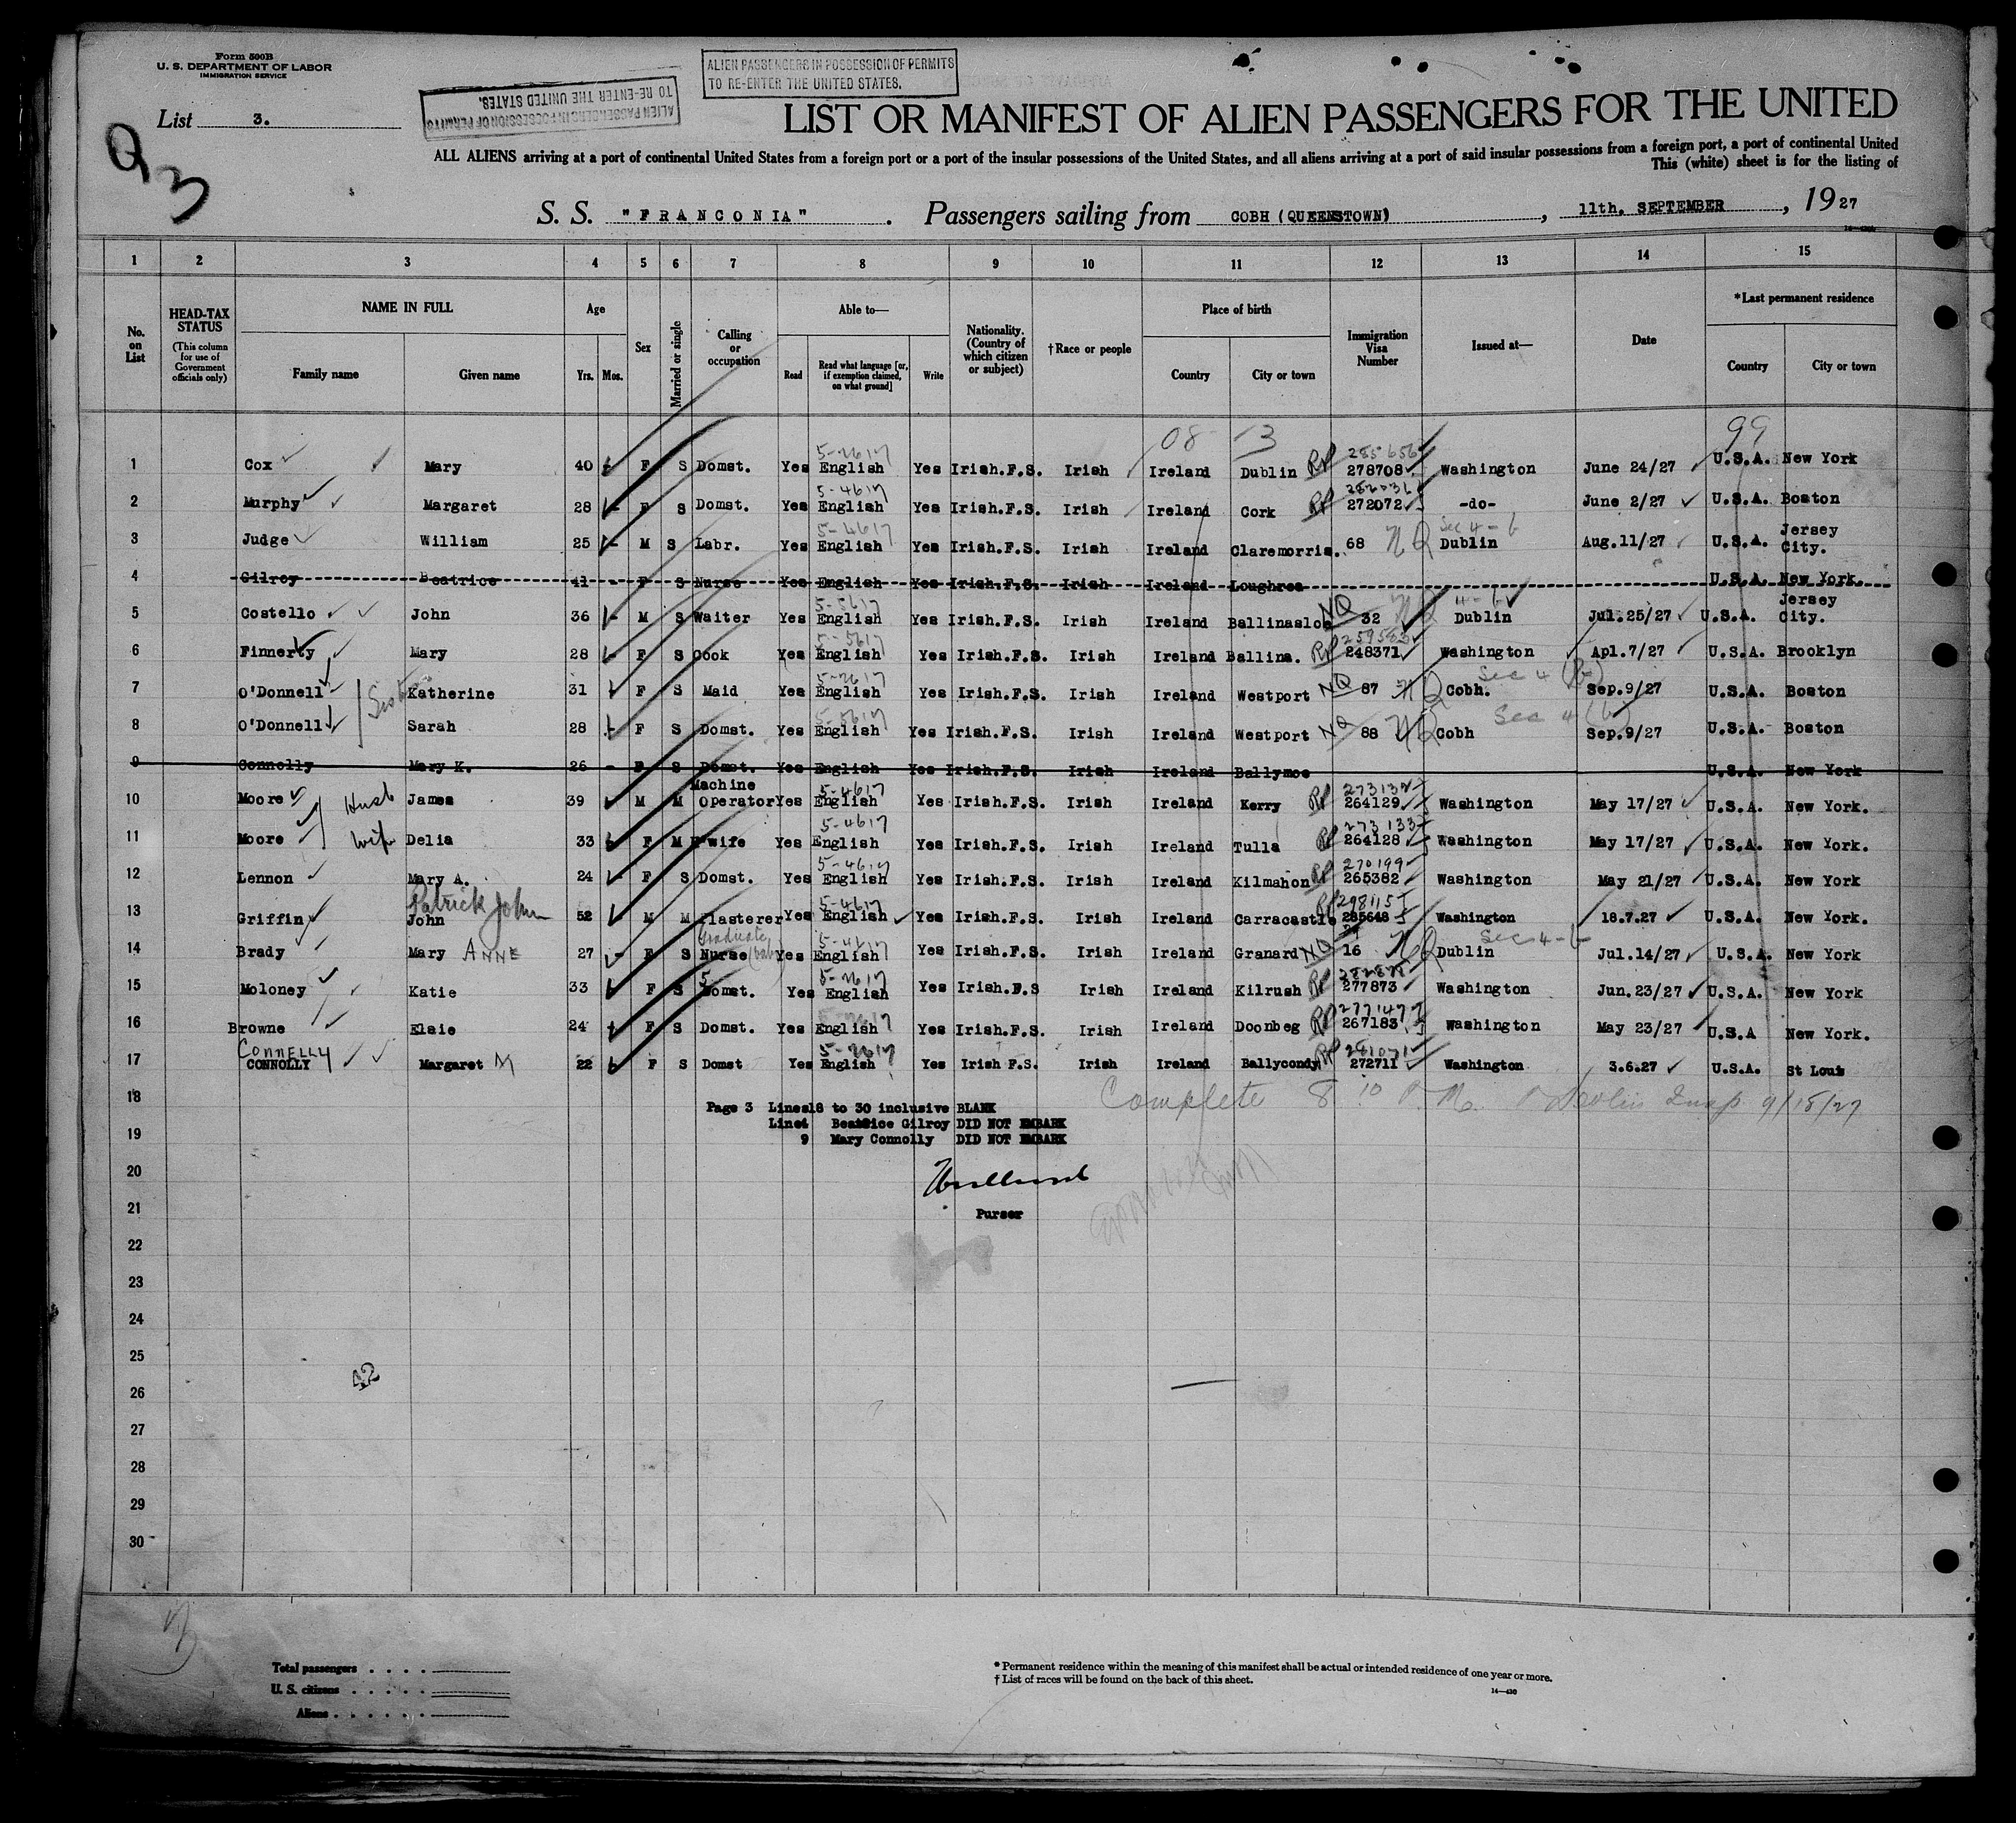 Form 500B
U. S. DEPARTMENT OF LABOR
IMMIGRATION SERVICE
ALIEN PASSENGERS IN POSSESSION OF PERMITS
TO RE-ENTER THE UNITED STATES.
ALIEN PASSENGERS IN POSSESSION OF PERMITS
TO RE-ENTER THE UNITED STATES.
List 3.
93
LIST OR MANIFEST OF ALIEN PASSENGERS FOR THE UNITED
ALL ALIENS arriving at a port of continental United States from a foreign port or a port of the insular possessions of the United States, and all aliens arriving at a port of said insular possessions from a foreign port, a port of continental United
This (white) sheet is for the listing of
S. S. "FRANCONIA". Passengers sailing from COBH (QUEENSTOWN), 11th. SEPTEMBER, 1927
1 2 3 4 5 6 7 8 9 10 11 12 13 14 15
No. on List
HEAD-TAX STATUS (This column for use of Government officials only)
NAME IN FULL Family name Given name
Age Yrs. Mos.
Sex
Married or single
Calling or occupation
Able to— Read Read what language [or, if exemption claimed, on what ground] Write
Nationality. (Country of which citizen or subject)
†Race or people
Place of birth Country City or town
Immigration Visa Number
Issued at—
Date
*Last permanent residence Country City or town
08 13 99
5-2617 285656
1 Cox Mary 40 F S Domst. Yes English Yes Irish.F.S. Irish Ireland Dublin RP 278708 Washington June 24/27 U.S.A. New York
5-4617 282031
2 Murphy Margaret 28 - F S Domst. Yes English Yes Irish.F.S. Irish Ireland Cork RP 272072 -do- June 2/27 U.S.A. Boston
5-4617 Sec 4-b
3 Judge William 25 - M S Labr. Yes English Yes Irish.F.S. Irish Ireland Claremorris. 68 NQ Dublin Aug.11/27 U.S.A. Jersey City.
4 Gilroy Beatrice 41 - F S Nurse Yes English Yes Irish.F.S. Irish Ireland Loughrea U.S.A. New York.
5-5617 4-b
5 Costello John 36 - M S Waiter Yes English Yes Irish.F.S. Irish Ireland Ballinasloe NQ 32 NQ Dublin Jul.25/27 U.S.A. Jersey City.
5-5617
6 Finnerty Mary 28 - F S Cook Yes English Yes Irish.F.S. Irish Ireland Ballina. RP 248371 Washington Apl.7/27 U.S.A. Brooklyn
5-2617 Sec 4 (b)
7 O'Donnell Katherine 31 F S Maid Yes English Yes Irish.F.S. Irish Ireland Westport NQ 87 NQ Cobh. Sep.9/27 U.S.A. Boston
5-5617 Sec 4 (b)
8 O'Donnell Sarah 28 - F S Domst. Yes English Yes Irish.F.S. Irish Ireland Westport NQ 88 NQ Cobh Sep.9/27 U.S.A. Boston
9 Connolly Mary K. 26 - F S Domst. Yes English Yes Irish.F.S. Irish Ireland Ballymoe U.S.A. New York
5-4617
10 Moore Husb James 39 M M Machine Operator Yes English Yes Irish.F.S. Irish Ireland Kerry RP 264129 Washington May 17/27 U.S.A. New York.
5-4617 273133
11 Moore Wife Delia 33 F M H-wife Yes English Yes Irish.F.S. Irish Ireland Tulla RP 264128 Washington May 17/27 U.S.A. New York.
5-4617 270199
12 Lennon Mary A. 24 - F S Domst. Yes English Yes Irish.F.S. Irish Ireland Kilmahon RP 265382 Washington May 21/27 U.S.A. New York
Patrick John 5-4617 298115
13 Griffin John 52 M M Plasterer Yes English Yes Irish.F.S. Irish Ireland Carracastle RP 285648 Washington 18.7.27 U.S.A. New York.
Graduate 5-4617 Sec 4-b
14 Brady Mary ANNE 27 - F S Nurse Yes English Yes Irish.F.S. Irish Ireland Granard NQ 16 NQ Dublin Jul.14/27 U.S.A. New York
5-2617
15 Moloney Katie 33 F S Domst. Yes English Yes Irish.F.S Irish Ireland Kilrush RP 277873 Washington Jun.23/27 U.S.A. New York
2617 277147
16 Browne Elsie 24 F S Domst. Yes English Yes Irish.F.S. Irish Ireland Doonbeg RP 267183 Washington May 23/27 U.S.A New York.
CONNELLY 5-2617 281071
17 CONNOLLY Margaret M 22 F S Domst Yes English Yes Irish F.S. Irish Ireland Ballycondy RP 272711 Washington 3.6.27 U.S.A. St Louis
18 Complete 8 10 P. M. Insp 9/18/27
Page 3 Lines18 to 30 inclusive BLANK
Line4 Beatrice Gilroy DID NOT EMBARK
19
9 Mary Connolly DID NOT EMBARK
20
21
Purser
22
23
24
25
42
26
27
28
29
30
Total passengers
U. S. citizens
Aliens
* Permanent residence within the meaning of this manifest shall be actual or intended residence of one year or more.
† List of races will be found on the back of this sheet.
14—430